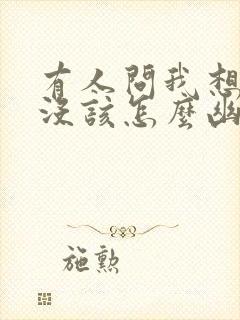 有人問我想
沒該怎麼幽
施勲